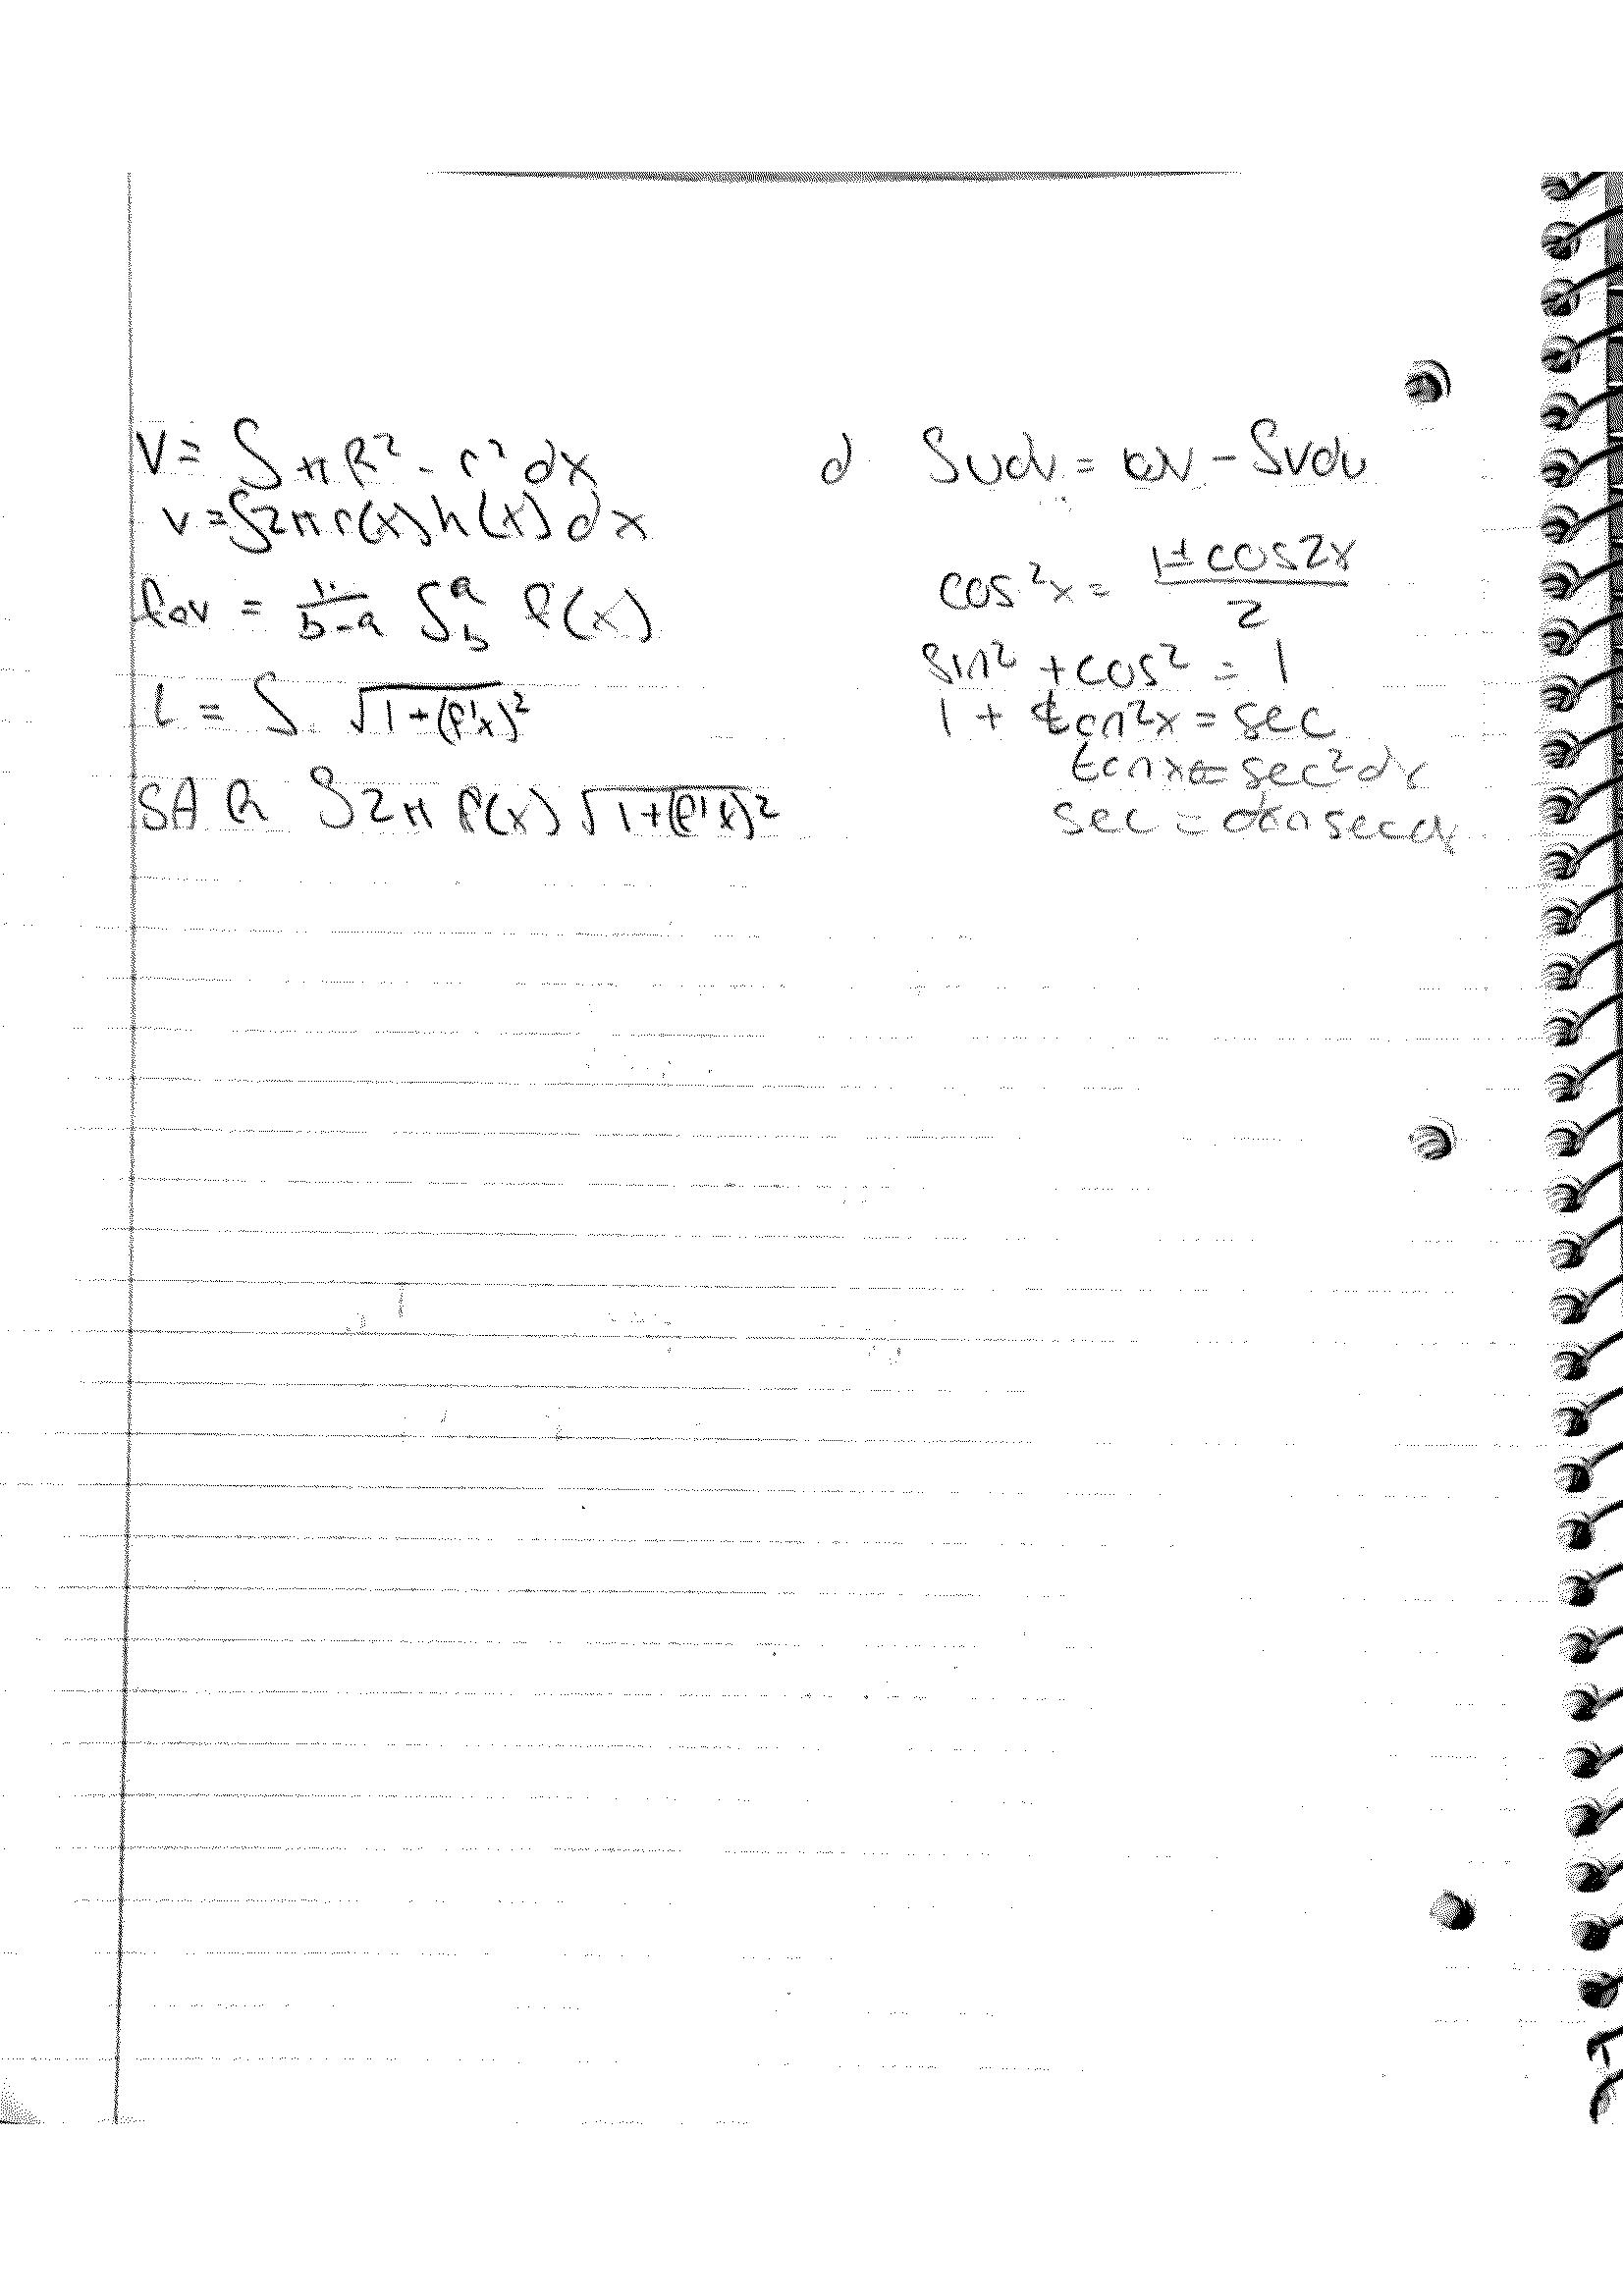 V = ∫ π R² - r² dx
v = ∫ 2π r(x) h(x) dx
fav = 1/(b-a) ∫_b^a f(x)
L = ∫ √(1+(f'x)²)
SA R ∫ 2π f(x) √(1+(f'x)²)
d ∫udv = uv - ∫vdu
cos²x = (1± cos2x)/2
sin² + cos² = 1
1 + tan²x = sec
tan x = sec² dx
sec = tan sec dx